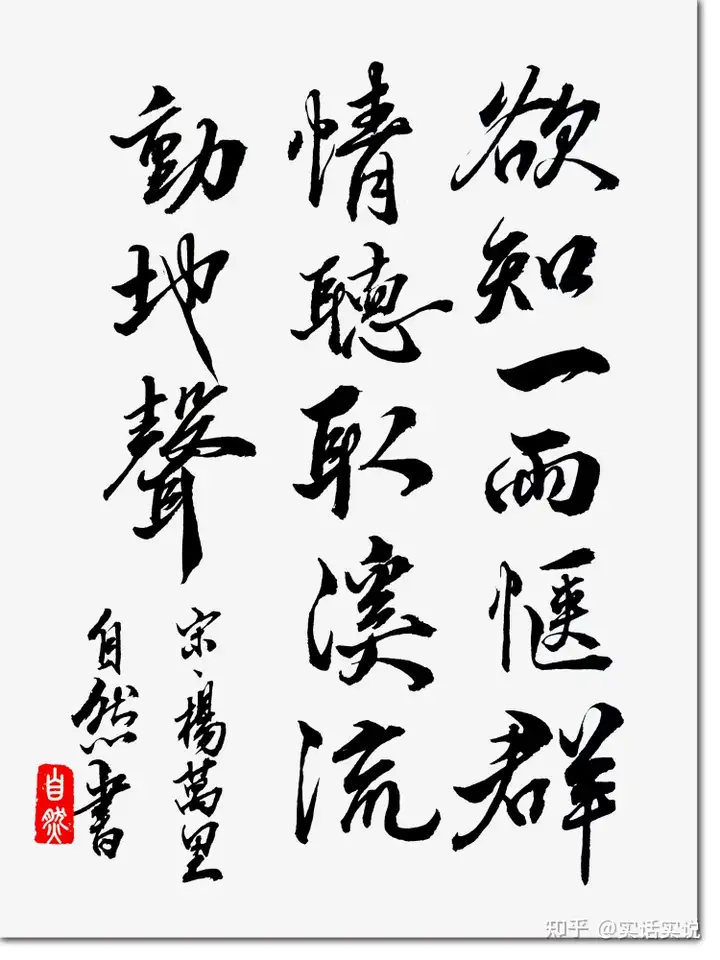 欲知一雨惬群
情聽取溪流
動地聲
宋、楊萬里
自然書
自然
知乎 @实话实说